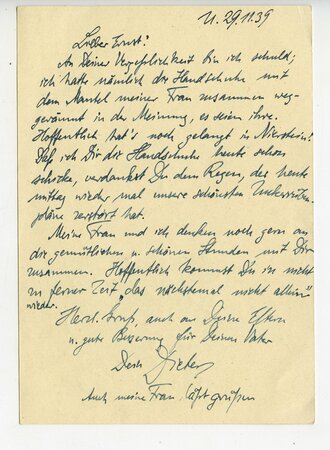 U. 29.11.39
Lieber Ernst!
An Deiner Vergeßlichkeit bin ich schuld;
ich hatte nämlich die Handschuhe mit
dem Mantel meiner Frau zusammen weg-
geräumt in der Meinung, es seien ihre.
Hoffentlich hat's noch gelangt in Nierstein!
Daß ich Dir die Handschuhe heute schon
schicke, verdankst Du dem Regen, der heute
mittag wieder mal unsere schönsten
pläne zerstört hat.
Meine Frau und ich denken noch gern an
die gemütlichen u. schönen Stunden mit Dir
zusammen. Hoffentlich kommst Du in nicht
zu ferner Zeit "das nächstemal nicht allein"
wieder.
Herzl. Gruß, auch an Deine Eltern
u. gute Besserung für Deinen Vater
Dein Dieter
Auch meine Frau läßt grüßen